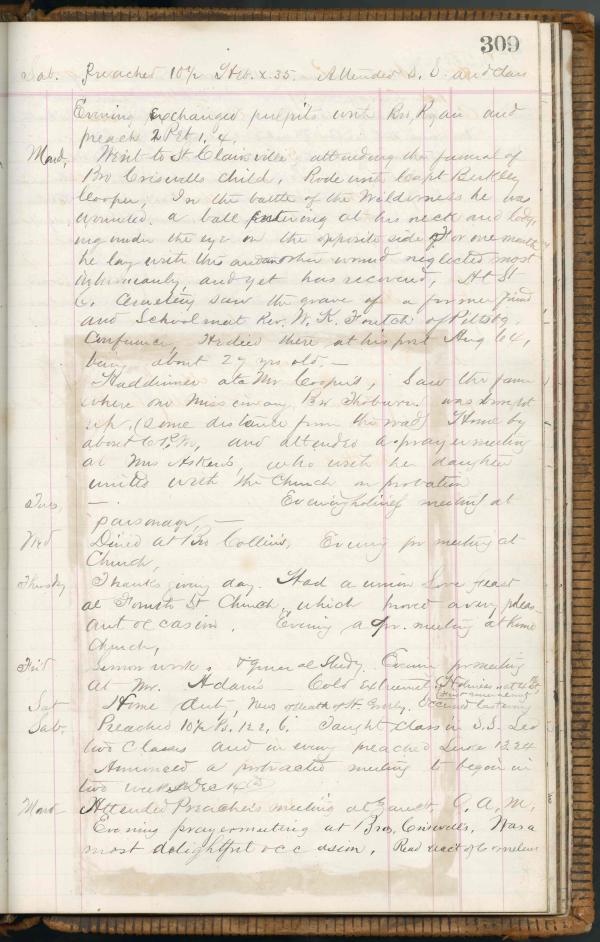 309
Sab. Preached 10½ Heb. X.35. Attended S. S. and class
Evening exchanged pulpits with Bro, Ryan and
preach 2 Pet 1, 4.
Mond, Went to St Clairsville, attending the funeral of
Bro Criswells child. Rode with Capt Berkley
Cooper, In the battle of the Wilderness he was
wounded. a ball entering at his neck and lodg,
ing under the eye on the opposite side, For one month
he lay with this and another wound neglected most
inhumanly, and yet has recovered, At St
C. Cemetery saw the grave of a former friend
and Schoolmate Rev. W. K. Foutch of Pittsbg.
Conference, He died there, at his post Aug 64,
being about 29 yrs old. —
Had dinner at a Mr Cooper's, Saw the farm
where our Missionary Bro Thoburn was brought
up, (some distance from the road) Home by
about 6 P.M, and attended a prayermeeting
at Mrs Askew's, who with her daughter
unites with the Church on probation
Tues, — Evening holiness meeting at
parsonage, —
Wed Dined at Bro Collins, Evening pr meeting at
Church,
Thursday Thanksgiving day. Had a union Love feast
at Fourth St Church, which proved a very pleas-
ant occasion. Evening a pr. meeting at Home
Church,
Frid Sermon work & General Study. Evening pr meeting
at Mr. Adam's Cold extreme, Holiness
Sat Home duty, News of death of H. Greely. Occurred last evening
Sab. Preached 10½ Ps. 122, 6. Taught class in S.S. Led
two Classes and in eveng preached Luke 13,24
Announced a protracted meeting to begin in
two weeks Dec 14
Mond Attended Preacher's meeting at 9 A. M,
Evening prayermeeting at Bro, Criswell's, Was a
most delightful occasion, Read